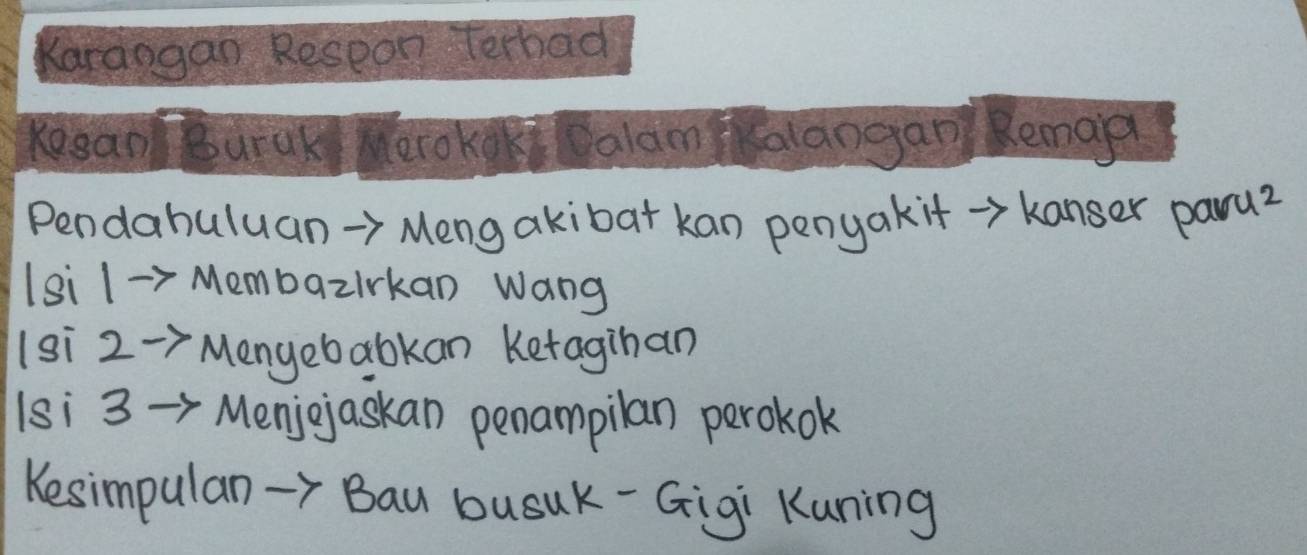 Karangan Respon Terhad
Kesan Buruk Merokok Dalam Kalangan Remaja
Pendahuluan → Mengakibatkan penyakit → kanser paru2
Isi 1 → Membazirkan Wang
Isi 2 → Menyebabkan Ketagihan
Isi 3 → Menjejaskan penampilan perokok
Kesimpulan → Bau busuk - Gigi Kuning